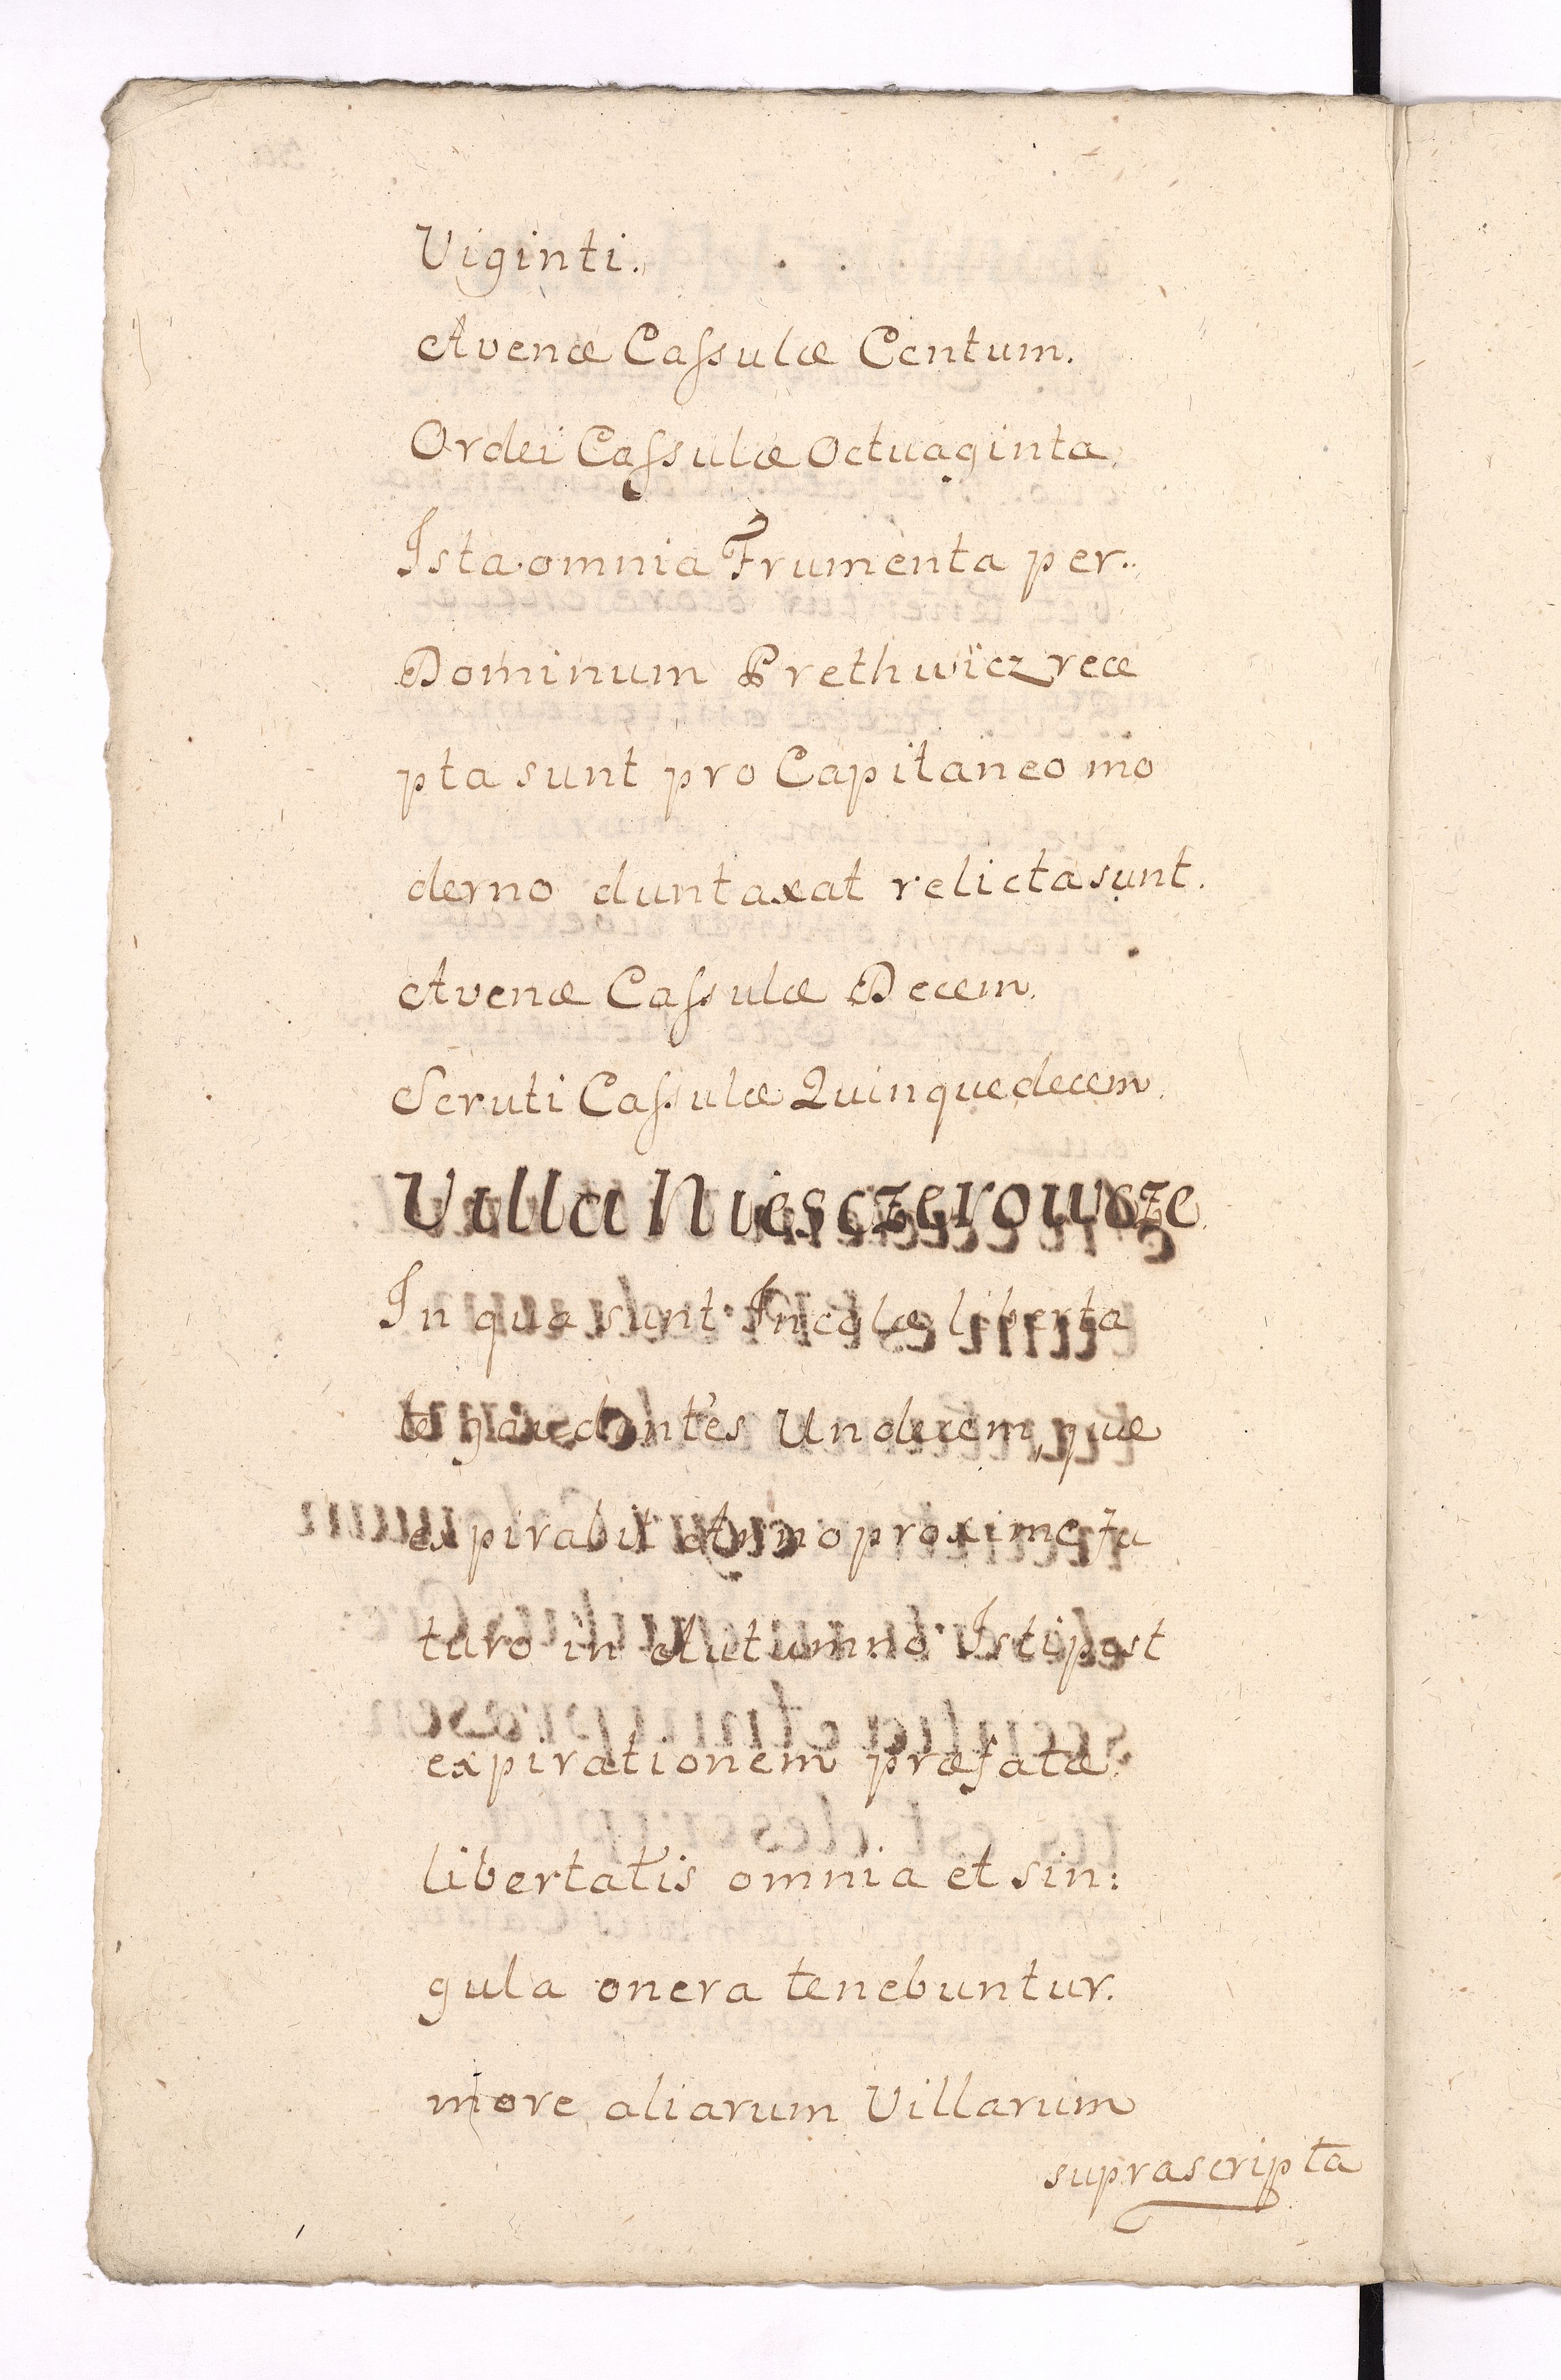 Viginti.
Avenæ Cassulæ Centum.
Ordei Cassulæ Octuaginta,
Ista omnia Frumenta per..
Dominum Prethwicz rece
pta sunt pro Capitaneo mo
derno duntaxat relicta sunt.
Avenæ Cassulæ Decem.
Scruti Cassulæ Quinquedecem.
Villa Niesczerowcze.
In qua sunt Incolæ liberta
te gaudentes Undecem, quæ
expirabit Anno proxime fu
turo in Autumno Isti post
expirationem præfatæ
libertatis omnia et sin:
gula onera tenebuntur.
more aliarum Villarum
suprascripta